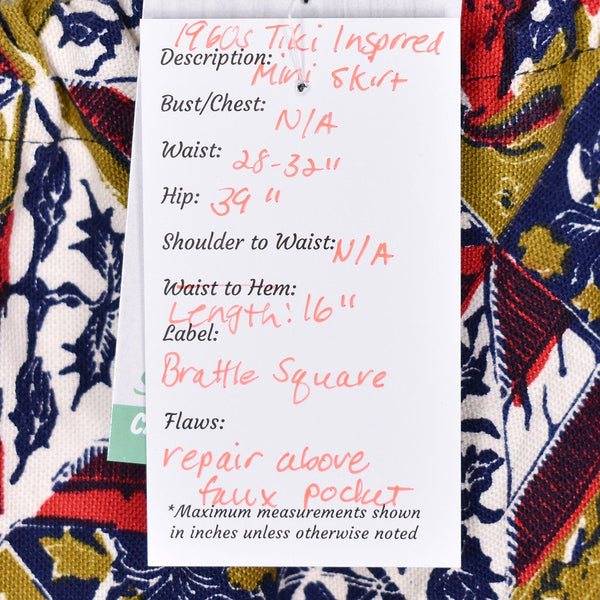 1960s Tiki Inspired
Description:
Mini Skirt
Bust/Chest:
N/A
Waist: 28-32"
Hip: 39"
Shoulder to Waist: N/A
Waist to Hem:
Length: 16"
Label:
Brattle Square
Flaws:
repair above
faux pocket
*Maximum measurements shown
in inches unless otherwise noted